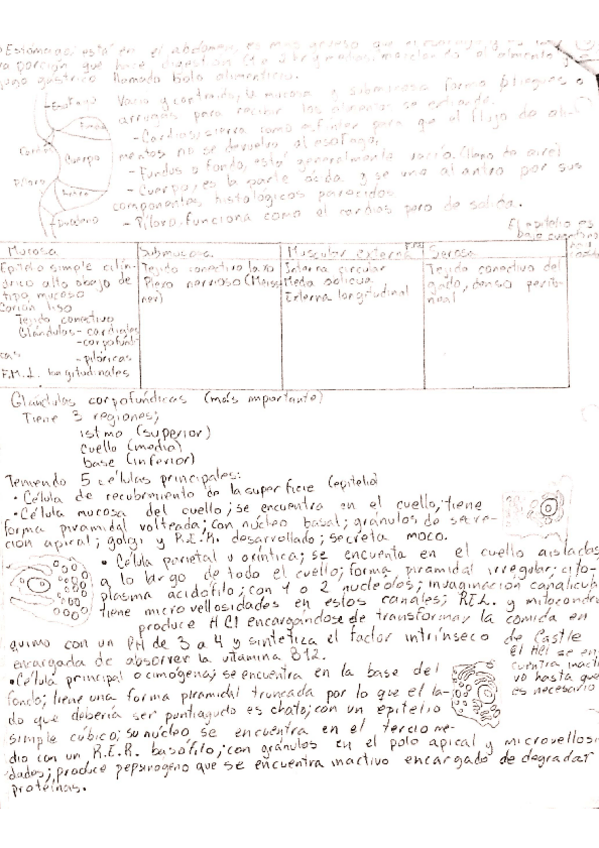 Estómago; está en el abdomen, es más grueso que el esófago y es la
porción que hace digestión mezclando el alimento y
jugo gástrico llamada bolo alimenticio.
Vacío y contraído, la mucosa y submucosa forma pliegues o
arrugas para recibir los alimentos se extiende.
-Cardias; cierra como esfínter para que el flujo de ali-
mentos no se devuelva al esófago,
-Fundus o fondo, está generalmente vacío. (lleno de aire)
-Cuerpo; es la parte ácida y se une al antro por sus
componentes histológicos parecidos
-Píloro; funciona como el cardias pero de salida.
Esófago
Fundus
Cardias
Cuerpo
Píloro
Antro
Duodeno
El epitelio es
Mucosa
Epitelio simple cilín-
drico alto abajo de
tipo mucoso
Corión liso
Tejido conectivo
Glándulas - cardiales
- corpofúndi-
cas
- pilóricas
F.M.I. longitudinales
Submucosa
Tejido conectivo laxo
Plexo nervioso (Meiss
ner)
Muscular externa
Interna circular
Media oblicua
Externa longitudinal
Serosa
Tejido conectivo del
gado, denso perito-
neal
Glándulas corpofúndicas (más importante)
Tiene 3 regiones;
istmo (superior)
cuello (medio)
base (inferior)
Teniendo 5 células principales:
• Célula de recubrimiento de la superficie (epitelio)
• Célula mucosa del cuello; se encuentra en el cuello, tiene
forma piramidal volteada; con núcleo basal; gránulos de secre-
ción apical; golgi y R.E.R. desarrollado; secreta moco.
• Célula parietal u oxíntica; se encuentra en el cuello aisladas
a lo largo de todo el cuello; forma piramidal irregular; cito-
plasma acidófilo; con 1 o 2 nucleolos; invaginación canalicular
tiene microvellosidades en estos canales; REL. y mitocondri
produce HCl encargándose de transformar la comida en
quimo con un PH de 3 a 4 y sintetica el factor intrínseco de Castle
encargada de absorver la vitamina B12.
El HCl se en
cuentra inacti
vo hasta que
es necesario
• Célula principal o cimógena; se encuentra en la base del
fondo; tiene una forma piramidal truncada por lo que el la-
do que debería ser puntiagudo es chato; con un epitelio
simple cúbico; su núcleo se encuentra en el tercio me-
dio con un R.E.R. basófilo; con gránulos en el polo apical y microvellosi
dades; produce pepsinogeno que se encuentra inactivo encargado de degradar
proteínas.